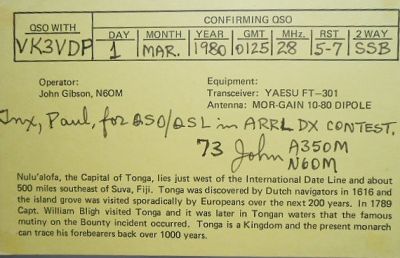 CONFIRMING QSO
QSO WITH DAY MONTH YEAR GMT MHz. RST 2 WAY
VK3VDP 1 MAR. 1980 0125 28 5-7 SSB
Operator: Equipment:
John Gibson, N6OM Transceiver: YAESU FT-301
Antenna: MOR-GAIN 10-80 DIPOLE
Tnx, Paul, for QSO/QSL in ARRL DX CONTEST.
73 John A35OM
N6OM
Nulu'alofa, the Capital of Tonga, lies just west of the International Date Line and about
500 miles southeast of Suva, Fiji. Tonga was discovered by Dutch navigators in 1616 and
the island grove was visited sporadically by Europeans over the next 200 years. In 1789
Capt. William Bligh visited Tonga and it was later in Tongan waters that the famous
mutiny on the Bounty incident occurred. Tonga is a Kingdom and the present monarch
can trace his forebearers back over 1000 years.